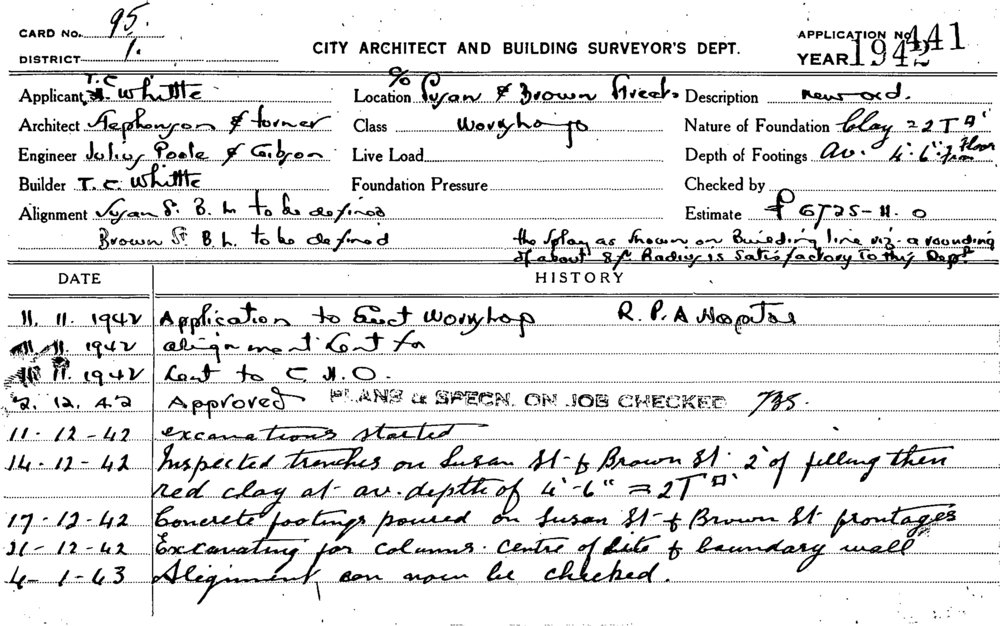 CARD NO. 95.
DISTRICT 1.
CITY ARCHITECT AND BUILDING SURVEYOR'S DEPT.
APPLICATION NO 441
YEAR 1942
Applicant T. C. Whittle
Location % Susan & Brown Streets
Description new ord.
Architect Stephenson & Turner
Class Workshops
Nature of Foundation Clay = 2T □'
Engineer Julius Poole & Gibson
Live Load
Depth of Footings Av. 4'-6" from Floor
Builder T. C. Whittle
Foundation Pressure
Checked by
Alignment Susan St. B. L. to be defined
Estimate £6725-11.0
Brown St. B. L. to be defined
the splay as shown on Building line viz. a rounding
of about 8ft Radius is satisfactory to this Dept.
DATE HISTORY
11. 11. 1942 Application to Erect Workshop R. P. A Hospital
11. 11. 1942 alignment sent for
11. 1942 Sent to C. H. O.
2. 12. 42 Approved PLANS & SPECN. ON JOB CHECKED
11-12-42 excavations started
14-12-42 Inspected trenches on Susan St & Brown St. 2' of filling then
red clay at av. depth of 4'-6" = 2T □'
17-12-42 Concrete footings poured on Susan St & Brown St frontages
21-12-42 Excavating for columns centre of site & boundary wall
4-1-43 Alignment can now be checked.